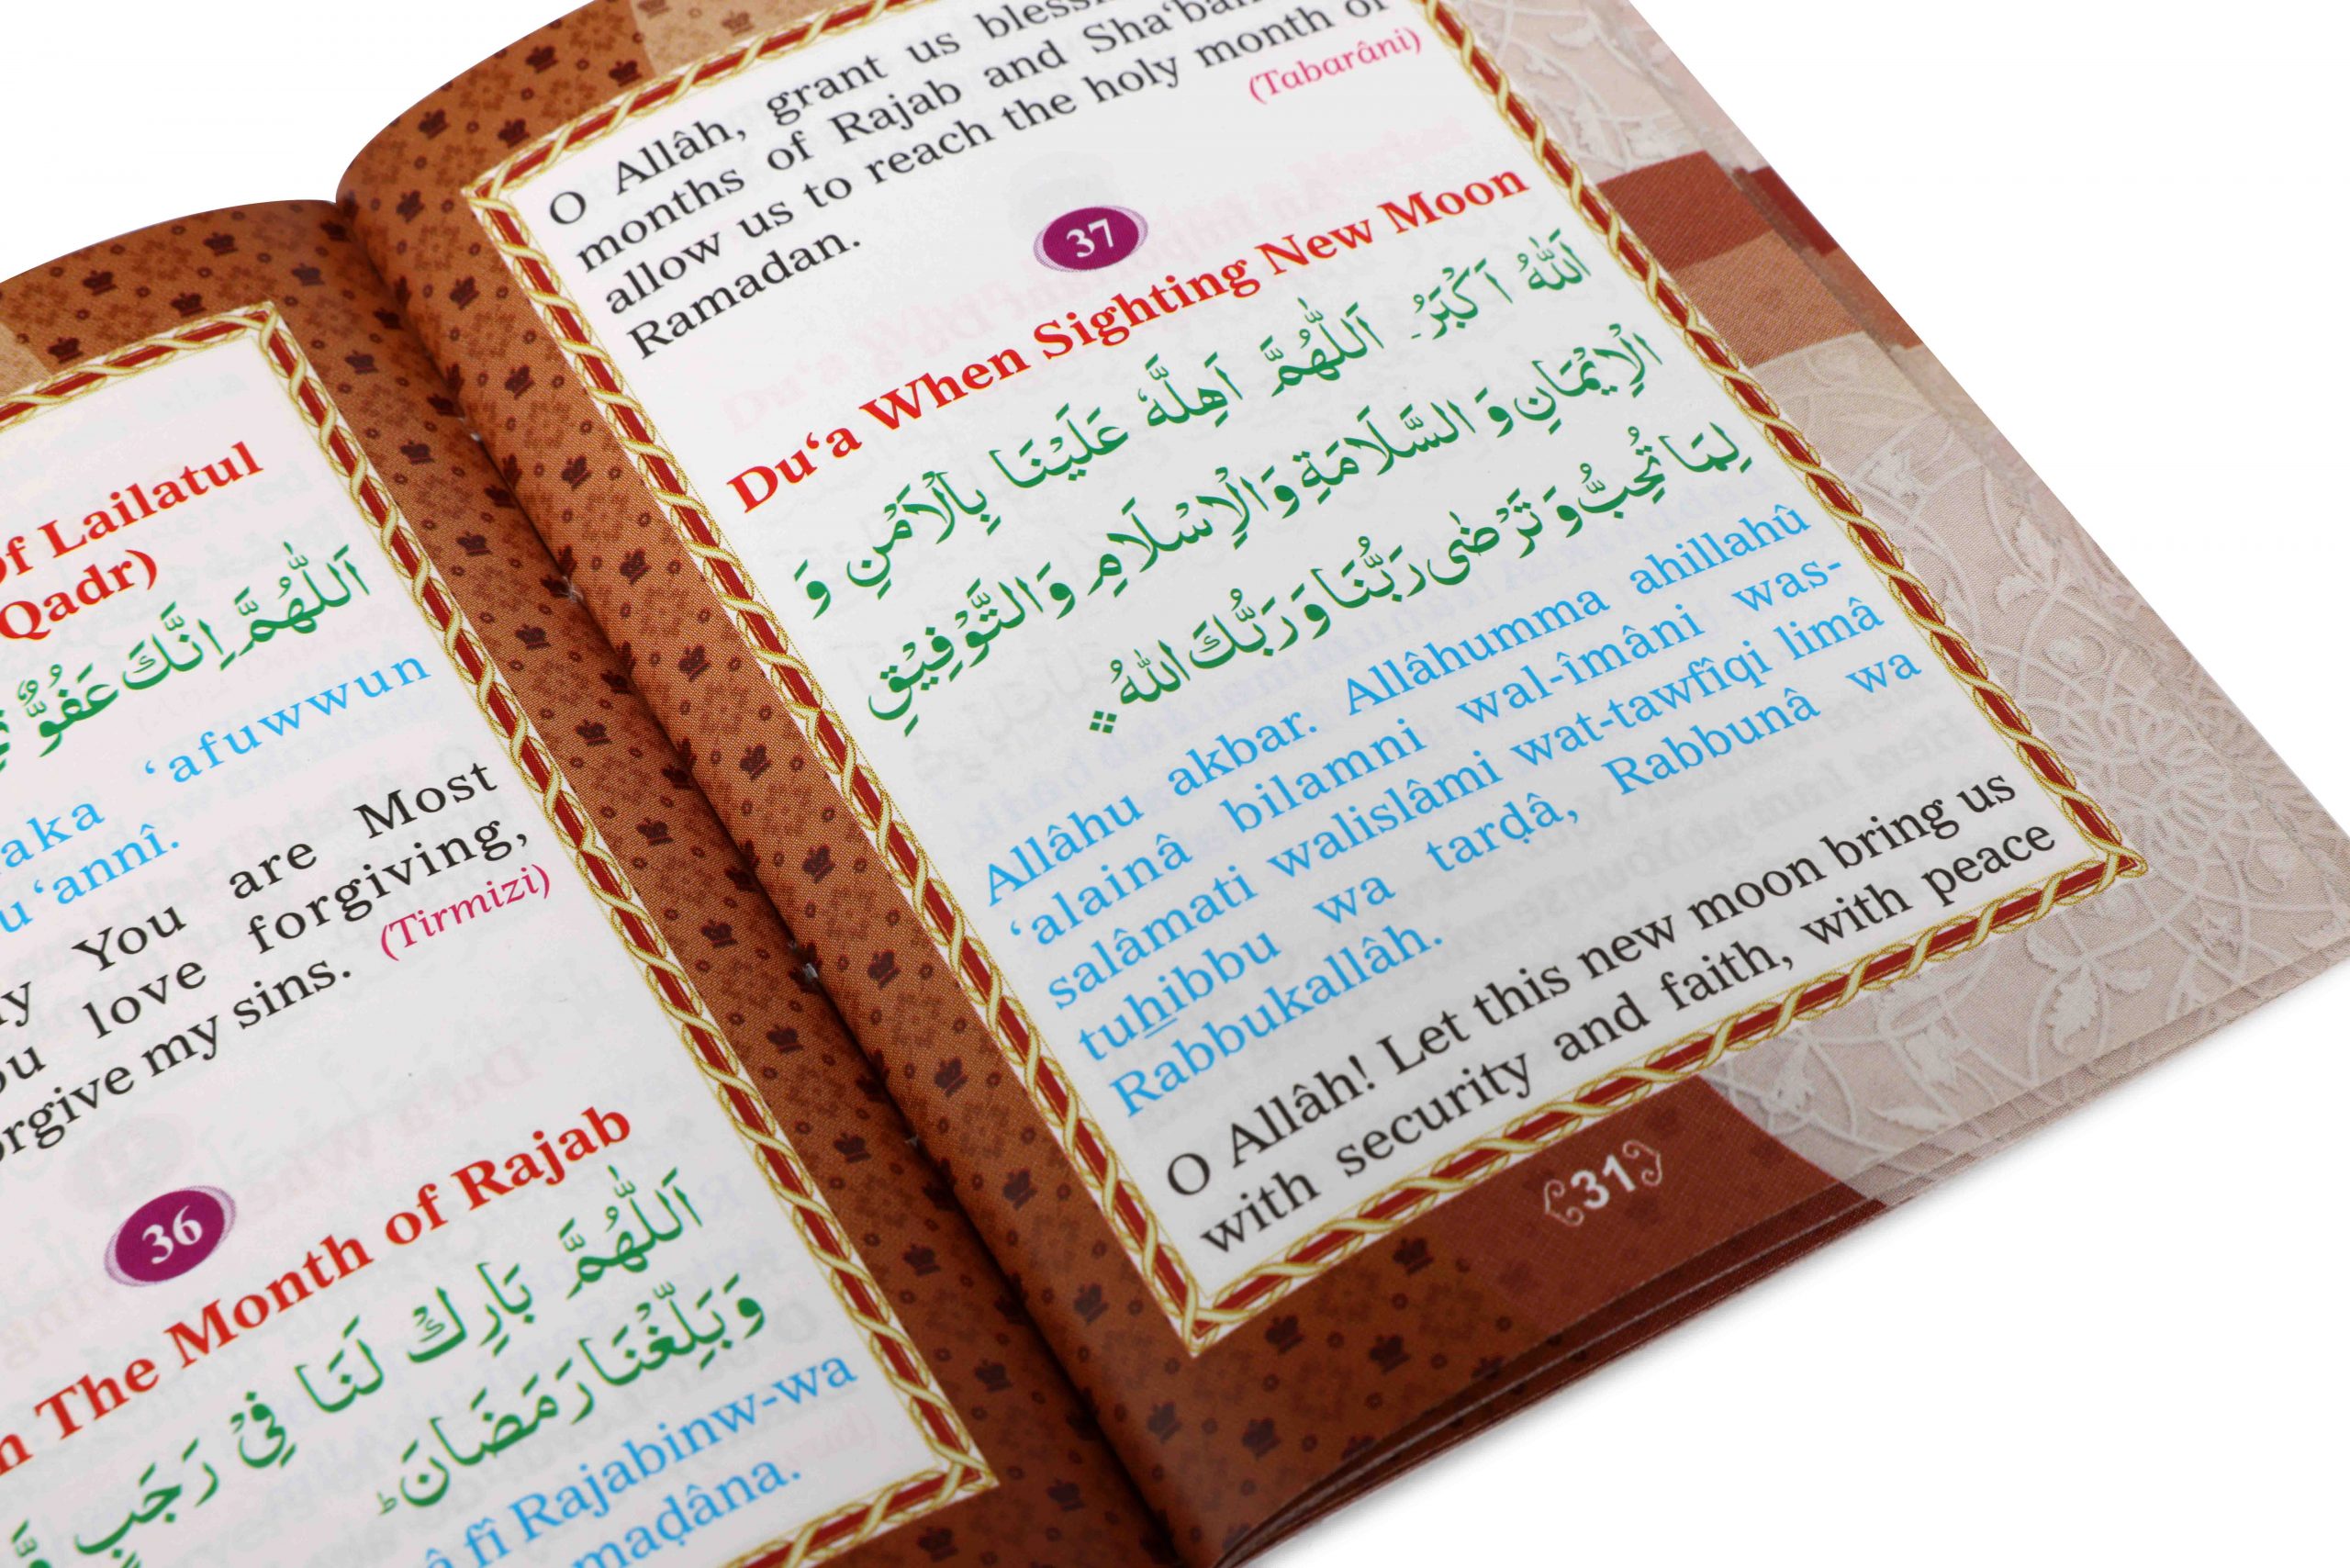 of Lailatul
Qadr)
اَللّٰهُمَّ اِنَّكَ عَفُوٌّ
‘afuwwun
‘annî.
You are Most
love forgiving,
my sins. (Tirmizi)
36
The Month of Rajab
اَللّٰهُمَّ بَارِكْ لَنَا فِيْ رَجَبٍ
وَبَلِّغْنَا رَمَضَانَ ؕ
fî Rajabinw-wa
O Allâh, grant us
months of Rajab and Sha‘ban
allow us to reach the holy month of
Ramadan. (Tabarâni)
37
Du‘a When Sighting New Moon
اَللّٰهُ اَكْبَرُ۔ اَللّٰهُمَّ اَهِلَّهٗ عَلَيْنَا بِالْاَمْنِ وَ
الْاِيْمَانِ وَ السَّلَامَةِ وَالْاِسْلَامِ وَالتَّوْفِيْقِ
لِمَا تُحِبُّ وَ تَرْضٰى رَبُّنَا وَ رَبُّكَ اللّٰهُ
Allâhu akbar. Allâhumma ahillahû
‘alainâ bilamni wal-îmâni was-
salâmati walislâmi wat-tawfîqi limâ
tuhibbu wa tarḍâ, Rabbunâ wa
Rabbukallâh.
O Allâh! Let this new moon bring us
with security and faith, with peace
31